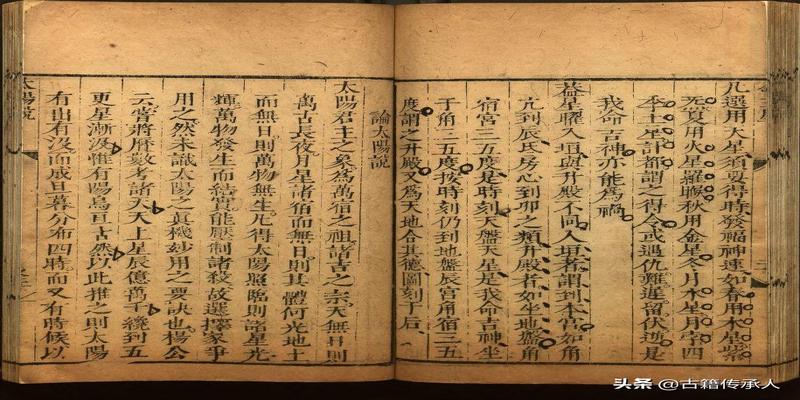 凡選用天星須要得時發福神速如春用木星紫
炁夏用火星羅睺秋用金星冬月木星月孛四
季土星計都謂之得令或遇仇難遲留伏逆是
我命吉神亦能為禍
葢星曜入垣與升殿不同入垣者謂到本宮如角
亢到辰氐房心到卯之類升殿者如坐地盤角
宿宮三五度是時刻天盤天星是我命吉神坐
于角三五度按時刻仍到地盤辰宮角宿三五
度謂之升殿又為天地合其德圖刻于后
論太陽說
太陽君主之象為萬宿之祖諸吉之宗天無日則
萬古長夜月星諸宿而無日則其體何光地土
而無日則萬物無生凡得太陽照臨則諸星光
輝萬物發生而結實能壓制諸殺故選擇家爭
用之然未識太陽之真機妙用之要訣也楊公
云嘗將曆數考諸天天上星辰億萬千纔到五
更星漸沒惟有陽烏亘古然以此推之則太陽
有出有沒而成旦暮分布四時而又有時候以
太陽說
头条 @古籍传承人